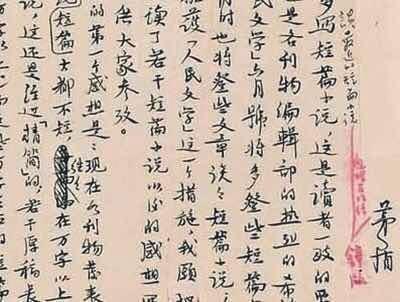 談最近的短篇小说
茅盾
多写短篇小说,这是讀者一致的要
也是各刊物編輯部的热烈的希
民文学》六月號将多登些短篇
同时也将登些文章谈谈短篇小说,
擁護《人民文学》这一个措施,我願把
读了若干短篇小说以后的感想写
供大家参考。
的第一个感想是:现在刊物發表
短篇大都不短,往往在万字以上
说,这还是经过“精简”的,若干原稿長